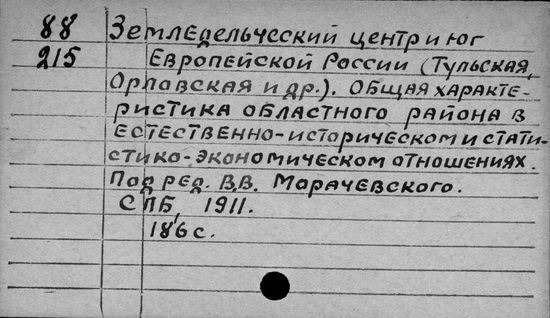 88 Земледельческий центр и юг
215 Европейской России (Тульская,
Орловская и др.). Общая характе-
ристика областного района в
естественно-историческом и стати-
стико-экономическом отношениях.
Под ред. В.В. Морачевского.
СПБ, 1911.
186 с.